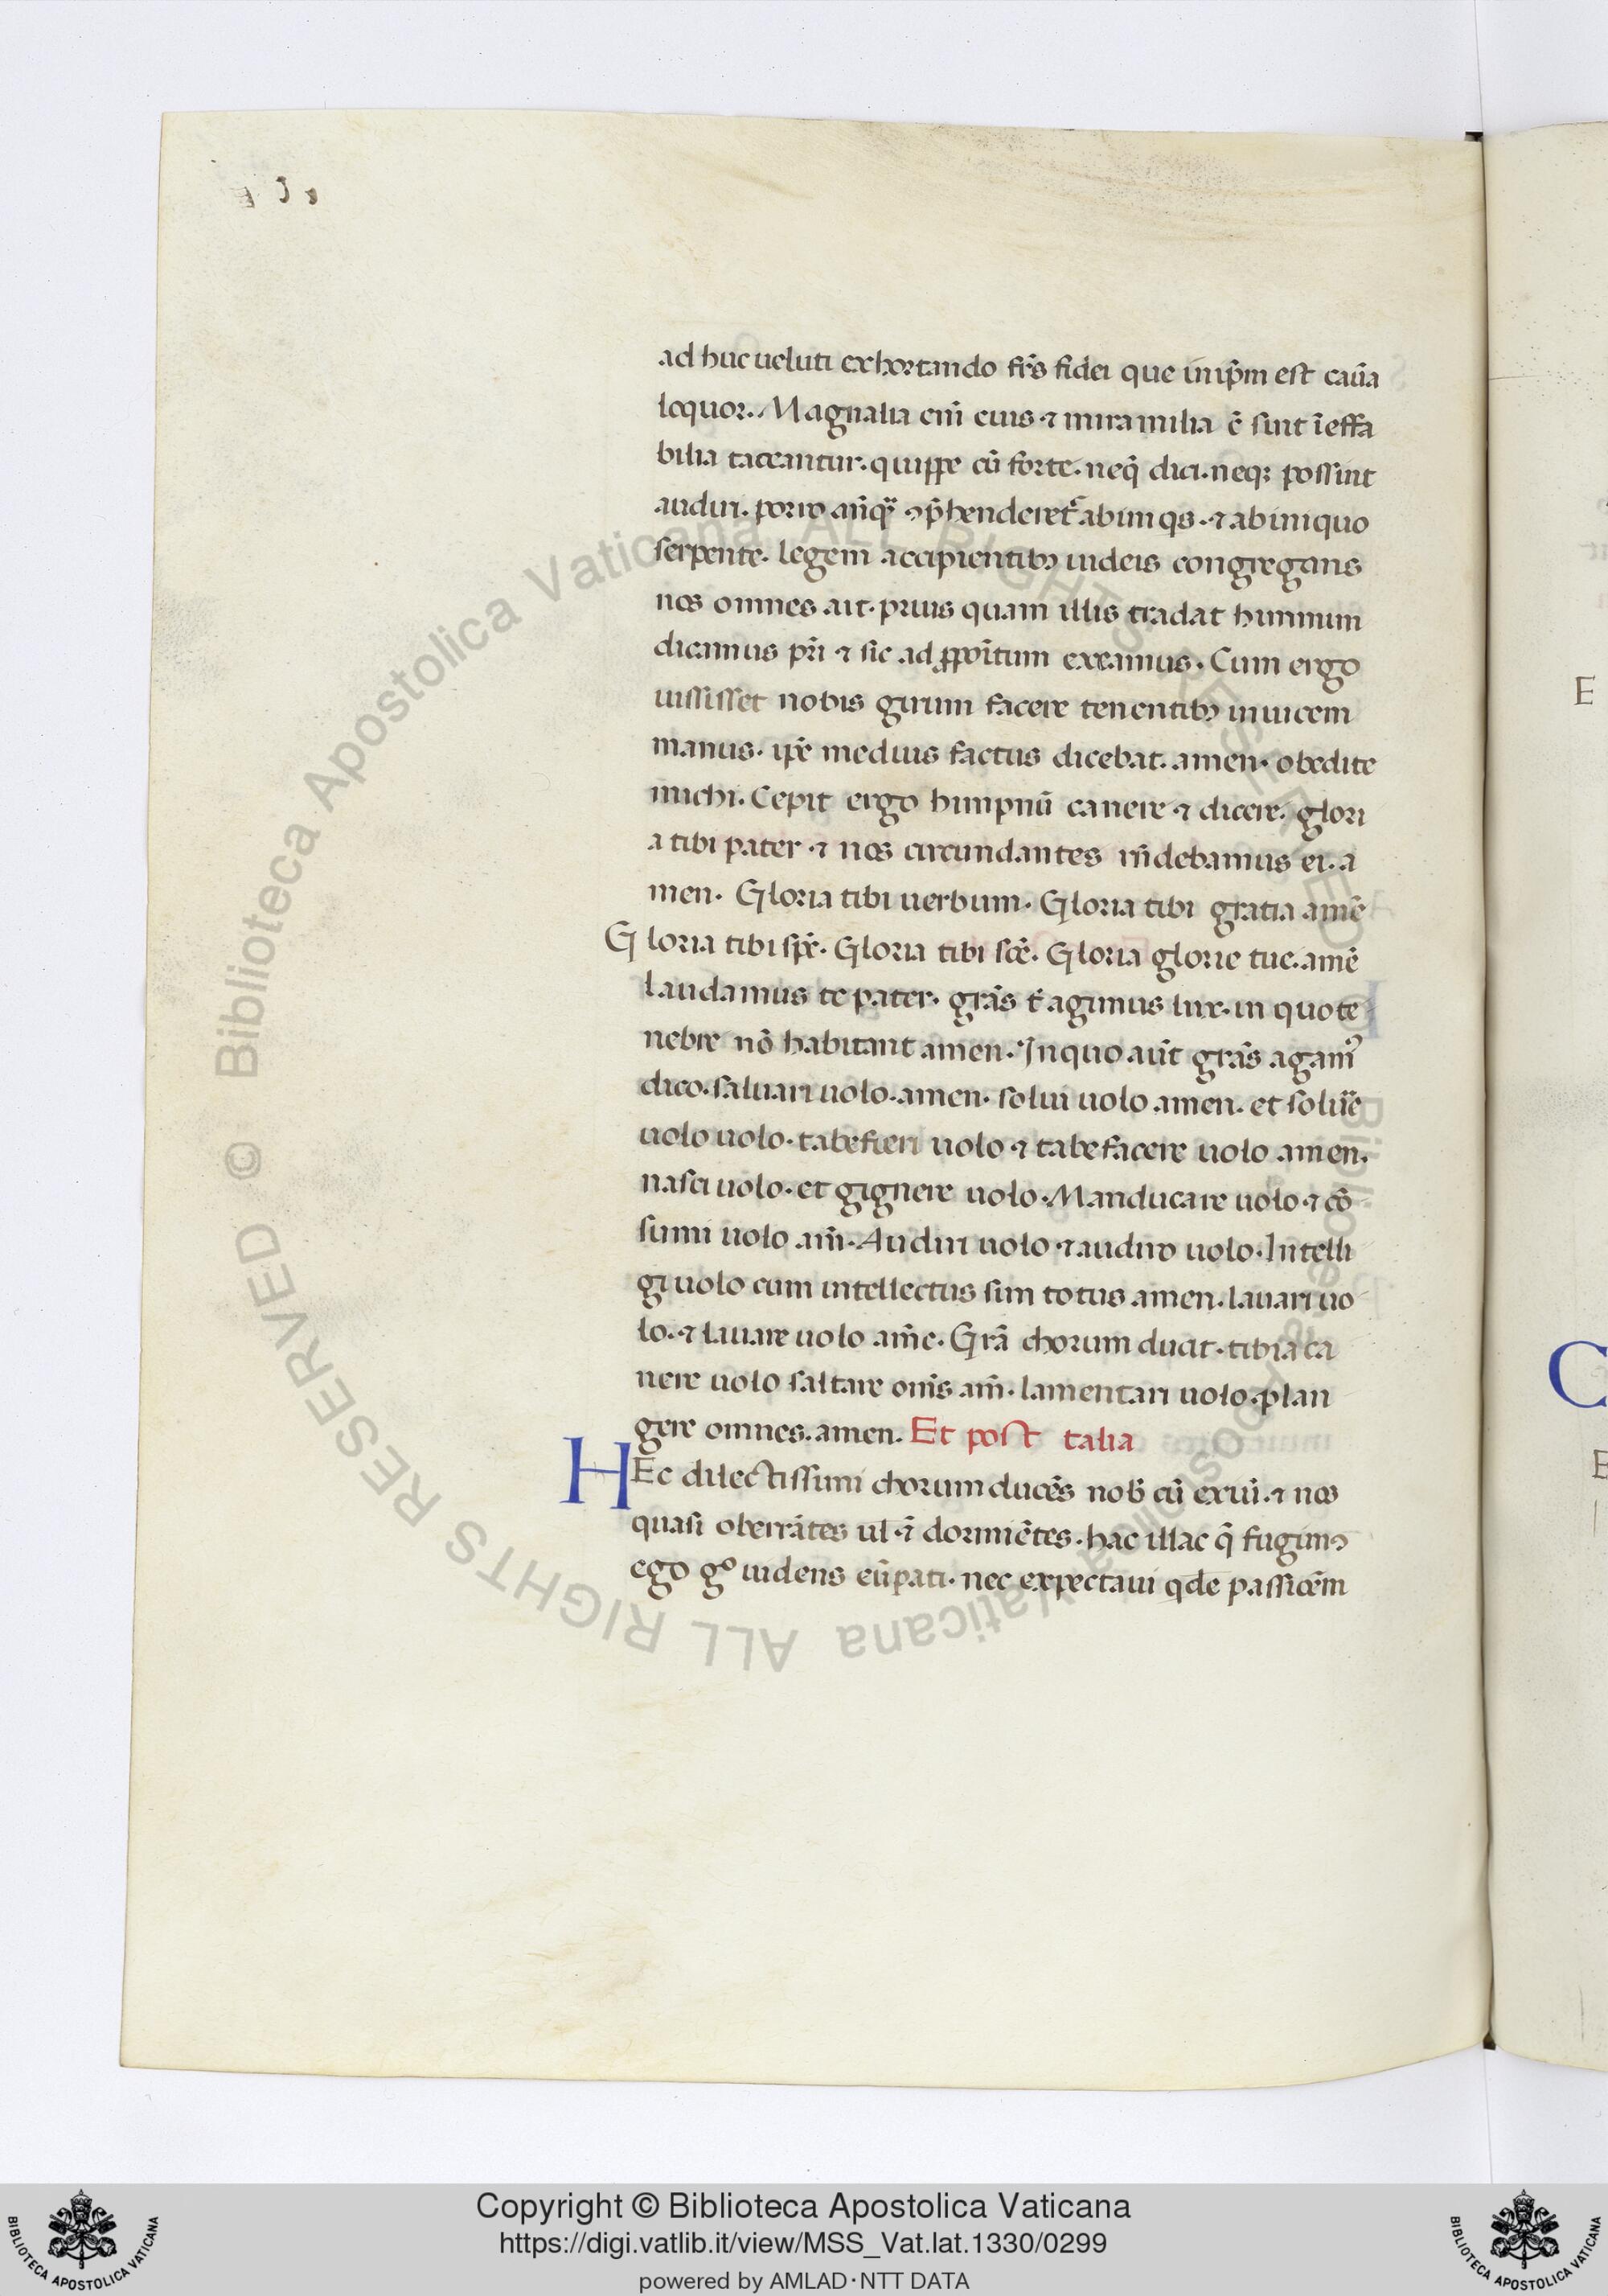 ad huc ueluti exhortando fr̃s fidei que in ip̃m est cãua
loquor. Magnalia eni͂ eius ⁊ mira milia c̃ sunt ĩeffa
bilia taceantur. quippe cũ forte. neq̃ dici. neqꝫ possint
audiri. porro
serpente. legem accipientibꝰ iudeis congregans
nos omnes ait. prius quam illis tradat himnum
dicamus pr̃i ⁊ sic ad ꝓpoĩtum exeamus. Cum ergo
iussisset nobis girum facere tenentibꝰ inuicem
manus. ip̃e medius factus dicebat. amen. obedite
michi. Cepit ergo himpnũ canere ⁊ dicere. glori
a tibi pater ⁊ nos circundantes rñdebamus ei. a
men. Gloria tibi uerbum. Gloria tibi gratia amẽ
Gloria tibi sp̃e. Gloria tibi sc̃e. Gloria glorie tue. amẽ
laudamus te pater. grãs t̃ agimus lux. in quo te
nebre nõ habitant amen. In quo aũt grãs agamꝰ
dico. saluari uolo. amen. solui uolo amen. et solũe
uolo uolo. tabefieri uolo ⁊ tabefacere uolo amen.
nasci uolo. et gignere uolo. Manducare uolo ⁊ cõ
sumi uolo am̃. Audiri uolo ⁊ audiro uolo. Intelli
gi uolo cum intellectus sim totus amen. lauari uo
lo. ⁊ lauare uolo am̃e. Grã chorum ducit. tibia ca
nere uolo saltare om̃s am̃. lamentari uolo. plan
gere omnes. amen. Et post talia
HEc dilectissimi chorum ducẽs nob̃ cũ exiui. ⁊ nos
quasi oberrãtes ul ĩ dormiẽtes. hac illac q̃ fugimꝰ
ego gº uidens eũ pati. nec expectaui qde passiõem
© Biblioteca Apostolica Vaticana ALL RIGHTS RESERVED © Biblioteca Apostolica Vaticana ALL RIGHTS RESERVED
E
C
E
Copyright © Biblioteca Apostolica Vaticana
https://digi.vatlib.it/view/MSS_Vat.lat.1330/0299
powered by AMLAD·NTT DATA
BIBLIOTECA APOSTOLICA VATICANA
BIBLIOTECA APOSTOLICA VATICANA